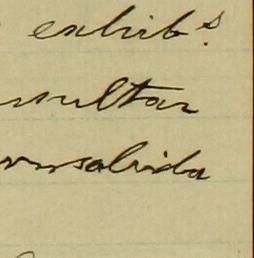 exhib.s
nsultar
onsolida